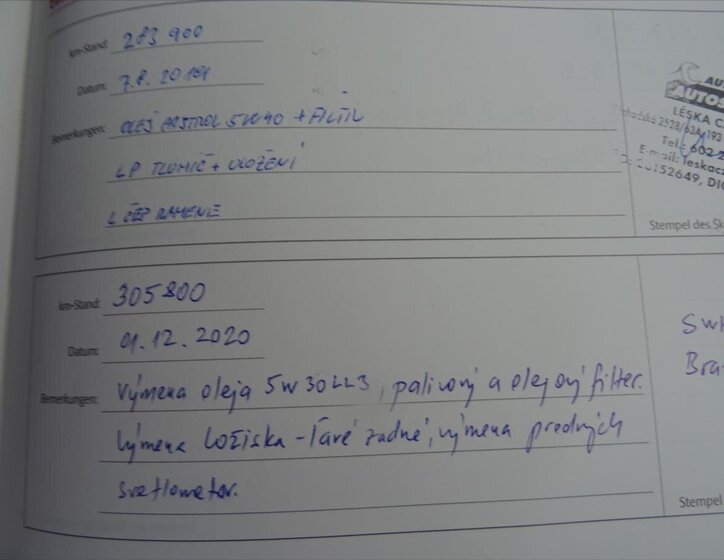 km-Stand: 283 900
Datum: 7.8. 2019
Bemerkungen: OLEJ CASTROL 5W40 + FILTR
LP TLUMIČ + ULOŽENÍ
L ČEP RAMENE
AUTO
LÉSKA C
2528/63A, 193
Tel.: 602 2
E-mail: leskac
152649, DI
Stempel des Šk
km-Stand: 305 800
Datum: 01.12.2020
Bemerkungen: Výmena oleja 5W30LL3, palivový a olejový filter.
Výmena Ložiska - ľavé zadné, výmena predných
svetlometov.
Bra
Stempel